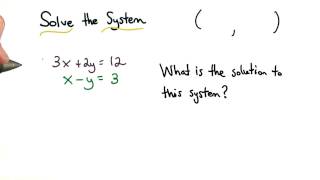 Solve the System
( , )
3x + 2y = 12
x - y = 3
What is the solution to
this system?